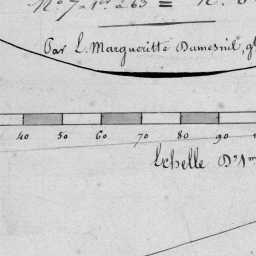 Par L. Margueritte Dumesnil, g
40 50 60 70 80 90 1
Echelle D'1 m